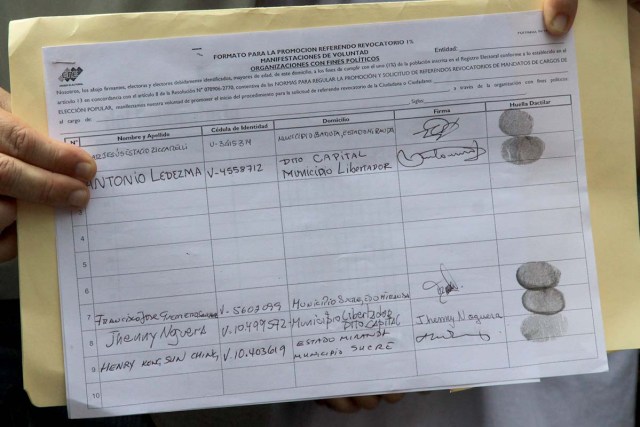 FORMATO PARA LA PROMOCION REFERENDO REVOCATORIO 1%
MANIFESTACIONES DE VOLUNTAD
ORGANIZACIONES CON FINES POLÍTICOS
Entidad:
Nosotros, los abajo firmantes, electoras y electores debidamente identificados, mayores de edad, de este domicilio, a los fines de cumplir con el uno (1%) de la población inscrita en el Registro Electoral conforme a lo establecido en el
artículo 13 en concordancia con el artículo 8 de la Resolución N° 070906-2770, contentiva de las NORMAS PARA REGULAR LA PROMOCIÓN Y SOLICITUD DE REFERENDOS REVOCATORIOS DE MANDATOS DE CARGOS DE
ELECCIÓN POPULAR, manifestamos nuestra voluntad de promover el inicio del procedimiento para la solicitud de referendo revocatorio de la Ciudadana o Ciudadano
a través de la organización con fines políticos
el cargo de
Siglas
N° Nombre y Apellido Cédula de Identidad Domicilio Firma Huella Dactilar
V-3415374
ANTONIO LEDEZMA V-4558712 DTTO CAPITAL
MUNICIPIO LIBERTADOR
3
4
5
6
7 V-5602099
Jhenny Noguera V-10.499572 Municipio Libertador Jhenny Noguera
8 DTTO CAPITAL
9 HENRY V.10.403619 ESTADO MIRANDA
MUNICIPIO SUCRE
10